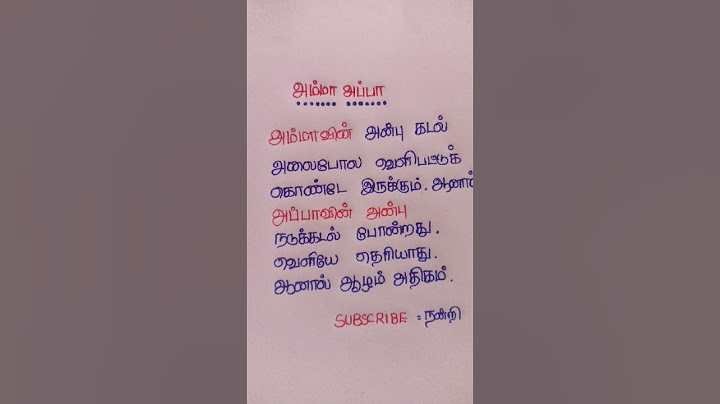 அம்மா அப்பா
அம்மாவின் அன்பு கடல்
அலைபோல வெளிபட்டுக்
கொண்டே இருக்கும். ஆனால்
அப்பாவின் அன்பு
நடுக்கடல் போன்றது.
வெளியே தெரியாது.
ஆனால் ஆழம் அதிகம்.
SUBSCRIBE = நன்றி